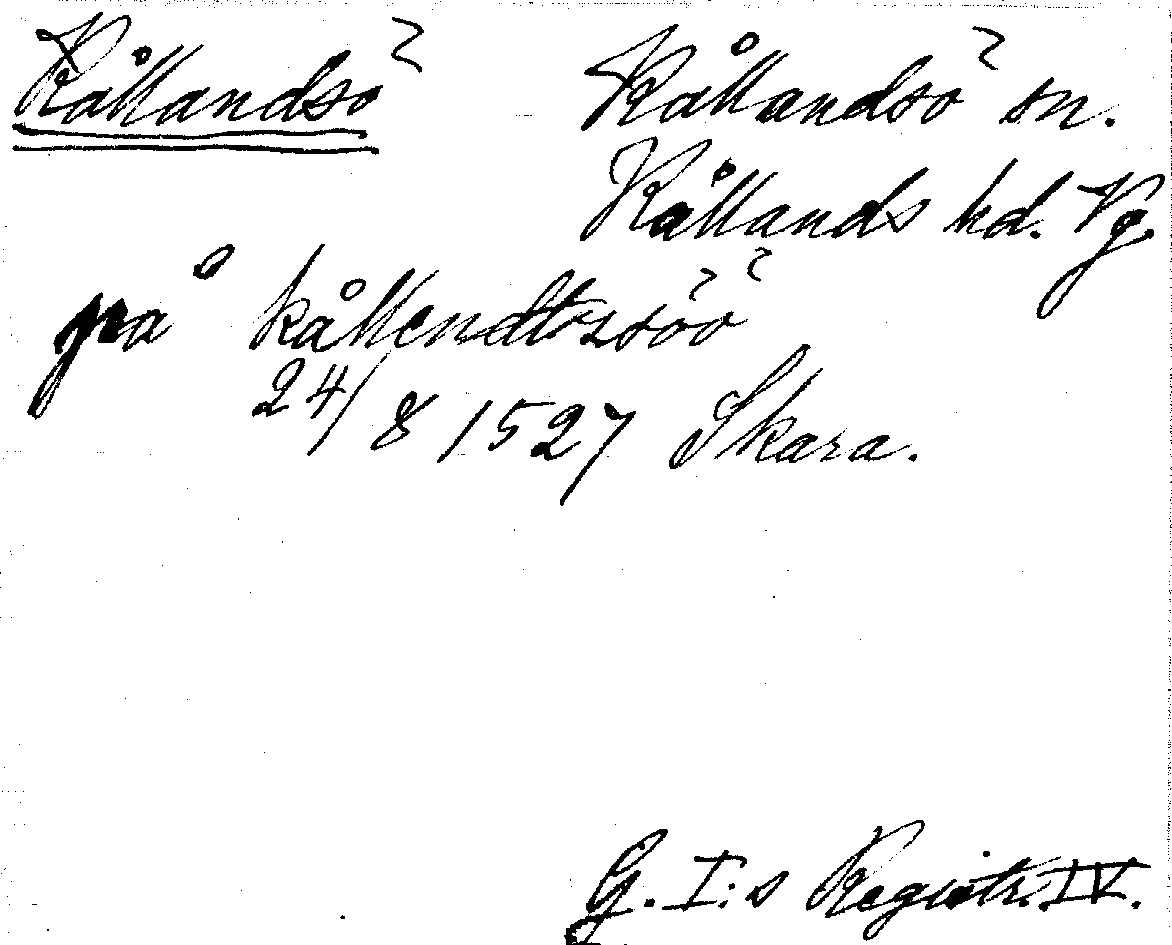 Kållandsö
Kållandsö sn.
Kållands hd. Vg.
på kållendtzsöö
24/8 1527 Skara.
G. I:s Registr. IV.